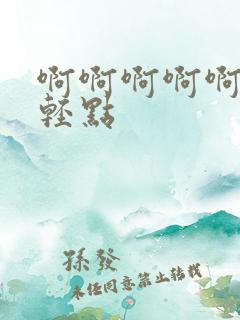 啊啊啊啊啊
輕點
孫發
未經同意禁止轉載